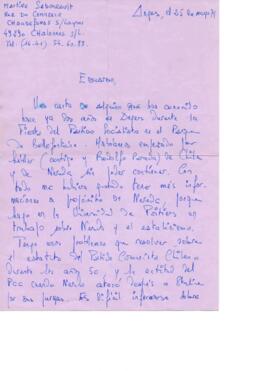 Martine Seboureault
Rue du Commerce
Chaudefonds s/Layon
49290 Chalonnes s/L.
Tel: (16.41) 54.60.88.
Angers, el 25 de mayo
Estimados,
Una carta de alguien que has conocido
hace ya dos años de Angers durante la
Fiesta del Partido Socialista en el Parque
de Habíamos empezado por
hablar contigo y Rodolfo de Chile
y de Neruda, sin poder continuar. Con
todo me hubiera gustado tener más infor-
maciones a propósito de Neruda, porque
hago en la Universidad de Poitiers un
trabajo sobre Neruda y el estalinismo.
Tengo unos problemas que resolver sobre
el estatuto del Partido Comunista Chileno
durante los años 50, y la actitud del
PCC cuando Neruda atacó después a Stalin
por sus purgas. Es difícil informarse sobre